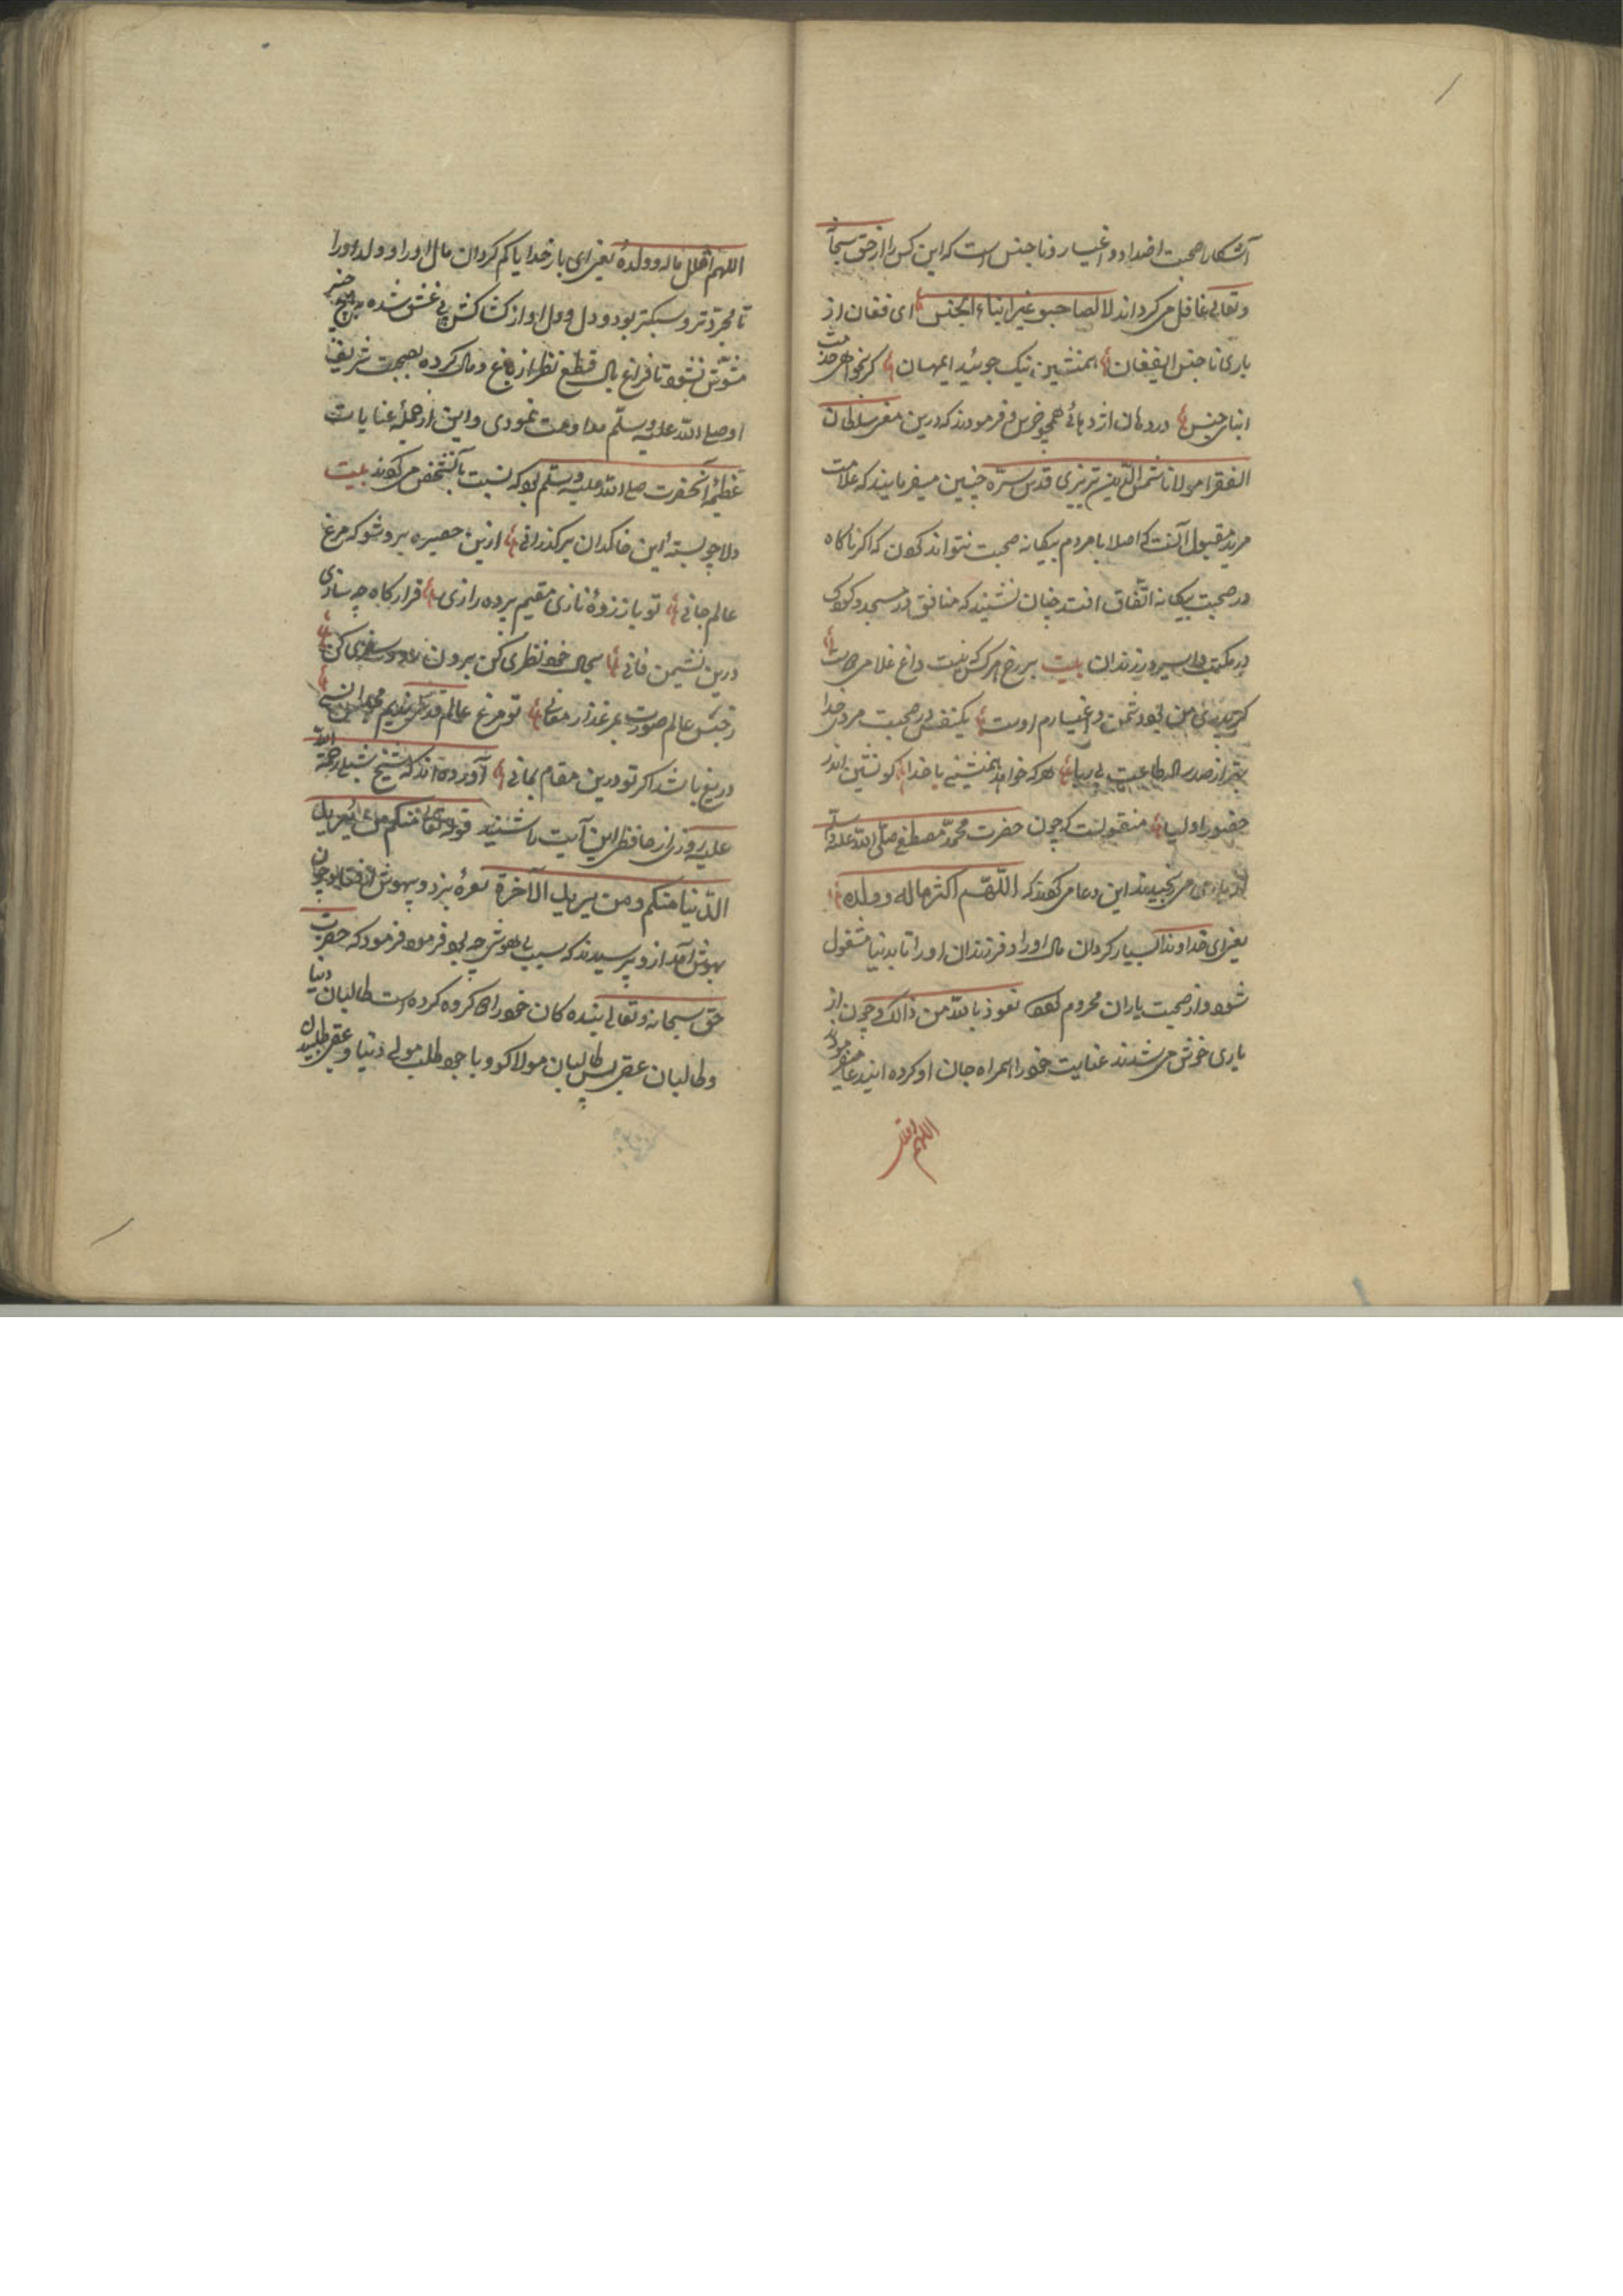 آشکارا صحبت اضداد و اغیار و ناجنس است که این کس را از حق سبحا
و تعالی غافل می گرداند لا تصاحبو غیر ابناء الجنس ای فغان از
یاری ناجنس ای فغان همنشین نیک جوئید ای مهان گر نخواهی خدمت
ابنای جنس در دهان اژدهائی همچو خرس و فرمودند که درین معنی سلطان
الفقرا مولانا شمس الدین تبریزی قدس سره چنین میفرمایند که علامت
مرید مقبول آنست که اصلا با مردم بیکانه صحبت نتواند کردن که اکر ناکاه
در صحبت بیکانه اتفاق افتد چنان نشیند که منافق در مسجد و کودک
در مکتب و اسیر در زندان بیت بر رخ هر کس که نیست داغ غلامی دوست
کر پدر من بود دشمن و اغیارم اوست یکنفس در صحبت مردخدا
بهتر از صد ساله طاعت بی ریا هر که خواهد همنشینی با خدا کو نشین اندر
حضور اولیا منقولست که چون حضرت محمد مصطفی صلی الله علیه و سلم
از یاری می رنجیدند این دعا می کردند که اللهم اکثر ماله و ولده
یعنی ای خداوندا بسیار کردان مال او را و فرزندان او را تا بدنیا مشغول
شود و از صحبت یاران محروم کردد نعوذ بالله من ذالک و چون از
یاری خوش می شدند عنایت خود را همراه جان او کرده اند میفرمودند
اللهم اقلل
اللهم اقلل ماله و ولده یعنی ای بار خدایا کم کردان مال او را و ولد او را
تا مجردتر و سبکتر بود و دل او از کشاکش بی غش شده به هیچ چیز
مشوش نشود تا فراغ بال قطع نظر از باغ و مال کرده بصحبت شریف
او صلی الله علیه و سلم مداومت نمودی و این از جملۀ عنایات
عظیمۀ آنحضرت صلی الله علیه و سلم بود که نسبت بآنشخص می کردند بیت
دلا چو بستۀ این خاکدان بر گذرانی ازین حصیره برو شو که مرغ
عالم جانی تو باز زدۀ نازی مقیم پردۀ رازی قرارکاه چه سازی
درین نشیمن فانی بحال خود نظری کن برون رو و سفری کن
ز حبس عالم صورت بمرغذار معانی تو مرغ عالم قدسی ندیم مجلس انسی
دریغ باشد اکر تو درین مقام بمانی آورده اند که شیخ شبلی رحمة الله
علیه روزی از حافظی این آیت را شنید قوله تعالی منکم من یرید
الدنیا منکم و من یرید الآخرة نعرۀ بزد و بیهوش افتاد و چون
بهوش آمد از و پرسیدند که سبب بی هوشی چه بود فرمود که حضرت
حق سبحانه و تعالی بنده کان خود را دو کروه کرده است طالبان دنیا
و طالبان عقبی پس طالبان مولا کو و با وجود طلب مولی دنیا و عقبی طلبیدن